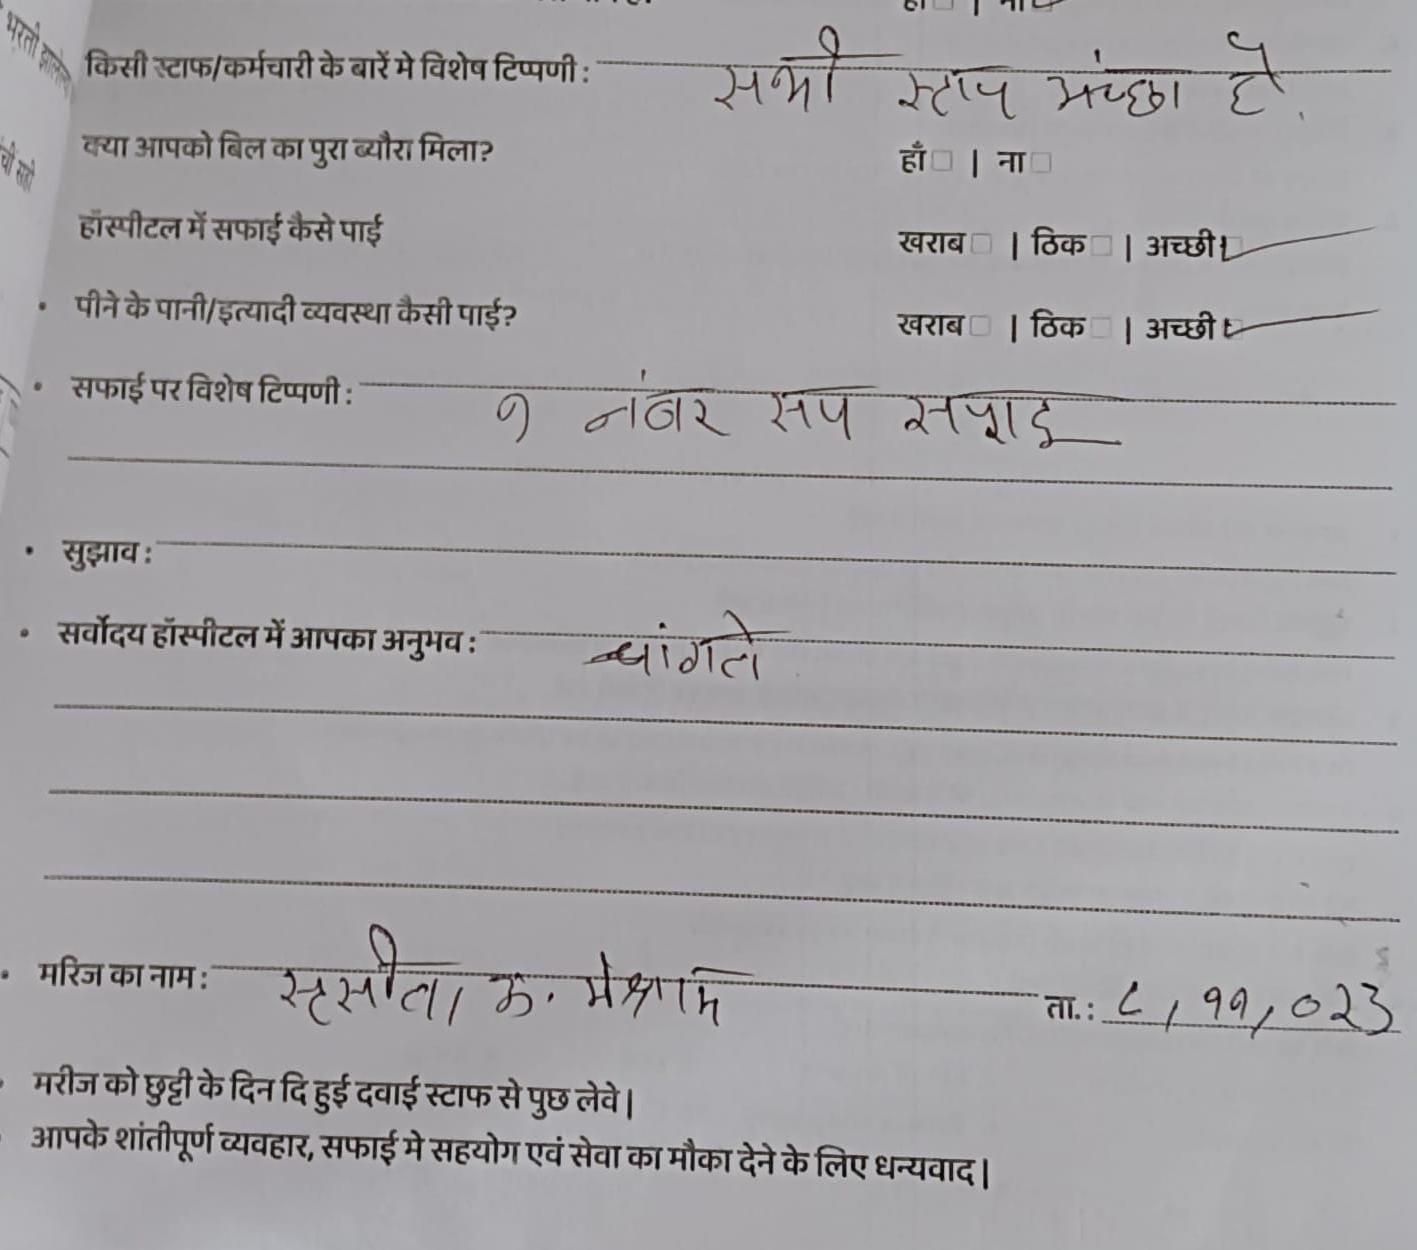 हाँ□ | ना□
किसी स्टाफ/कर्मचारी के बारें मे विशेष टिप्पणी : सभी स्टाप अच्छा है.
क्या आपको बिल का पुरा ब्यौरा मिला? हाँ□ | ना□
हॉस्पीटल में सफाई कैसे पाई खराब□ | ठिक□ | अच्छी□
• पीने के पानी/इत्यादी व्यवस्था कैसी पाई? खराब□ | ठिक□ | अच्छी□
• सफाई पर विशेष टिप्पणी : १ नंबर साप सपाई
• सुझाव :
• सर्वोदय हॉस्पीटल में आपका अनुभव : चांगले
• मरिज का नाम : मेश्राम ता.: ८, ११, ०२३
• मरीज को छुट्टी के दिन दि हुई दवाई स्टाफ से पुछ लेवे|
आपके शांतीपूर्ण व्यवहार, सफाई मे सहयोग एवं सेवा का मौका देने के लिए धन्यवाद|